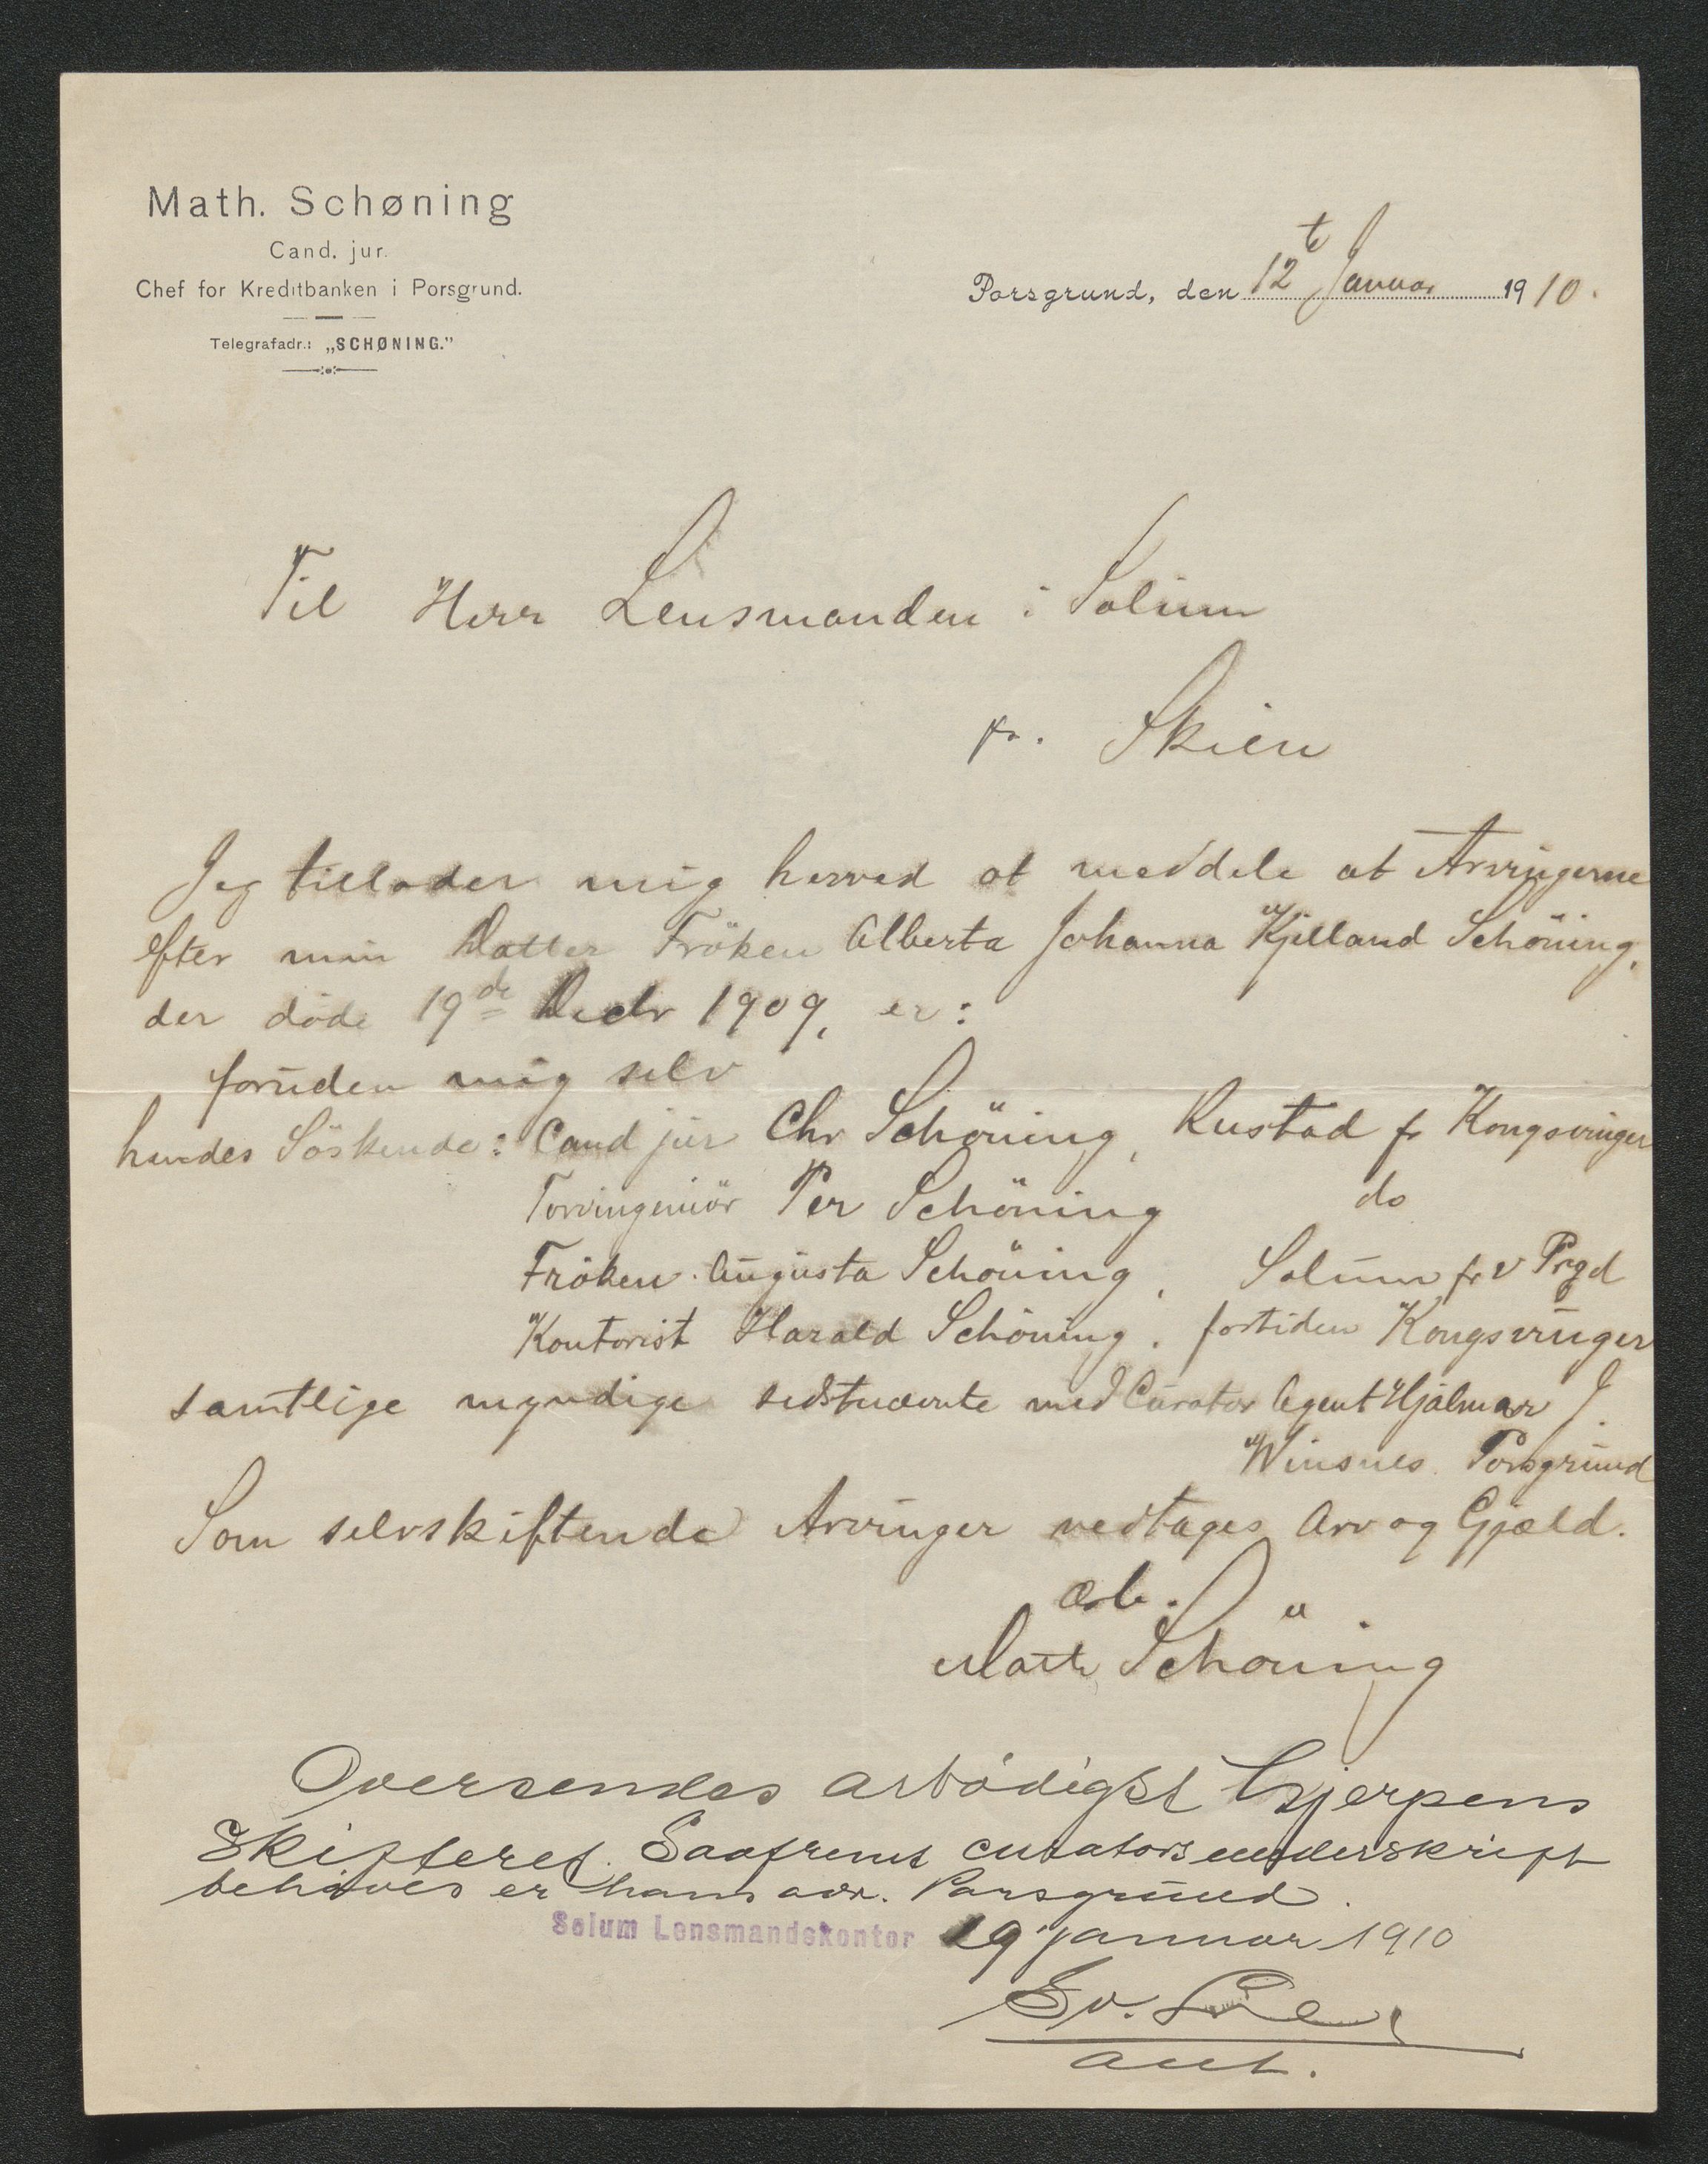 Math. Schøning
Cand. jur.
Chef for Kreditbanken i Porsgrund.
Telegrafadr.: „SCHØNING."
Porsgrund, den 12te Januar 1910.
Til Herr Lensmanden i Solum
pr. Skien
Jeg tillader mig herved at meddele at Arvingerne
efter min Datter Fröken Alberta Johanna Kjelland Schöning,
der döde 19de Decbr 1909, er:
foruden mig selv
hendes Söskende: Cand jur Chr Schöning, Rustad pr Kongsvinger
Torvingeniör Per Schöning do
Fröken Augusta Schöning, Solum pr Prgd
Kontorist Harald Schöning, fortiden Kongsvinger
samtlige myndige sidstnævnte med Curator Agent Hjalmar J.
Winsnes Porsgrund
Som selvskiftende Arvinger vedtages Arv og Gjæld.
ærb.
Math Schöning
Oversendes ærbödigst Gjerpens
Skifteret. Saafremt curators underskrift
behöves er hans adr. Porsgrund.
Solum Lensmandskontor 19 januar 1910
Ev.
aut.